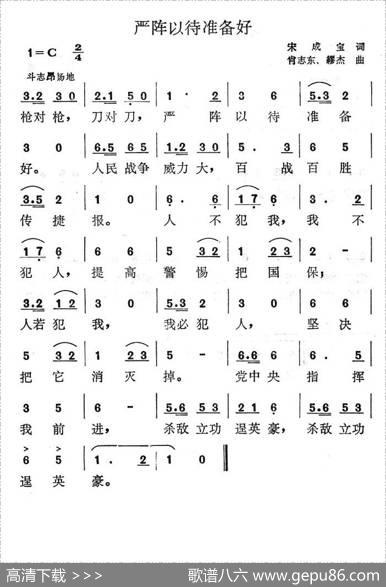 严阵以待准备好
1=C 2/4
宋成宝 词
斗志昂扬地
肖志东、繆杰 曲
3.2 3 0 | 2.1 5 0 | 1 · 2 | 3 6 | 5.3 2 |
枪对枪，刀对刀，严阵以待准备
3 0 | 6.5 6 5 | 1.2 3 0 | 6 · 5 | 3 · 2 |
好。人民战争威力大，百战百胜
3.5 2 | 1 0 | 6 · 6 | 1 7 6 | 3 · 2 |
传捷报。人不犯我，我不
1 7 6 | 6 6 | 5 3 2 | 1 2 3 | 2 - |
犯人，提高警惕把国保，
3.2 1 2 | 3 0 | 5.6 5 3 | 2 - | 6 · 5 |
人若犯我，我必犯人，坚决
5 3 2 | 1 2 3 | 5 - | 6.6 6 | 6 · 5 |
把它消灭掉。党中央指挥
3 5 | 6 - | 5.6 5 3 | 2.3 5 | 5.6 5 3 |
我前进，杀敌立功逞英豪，杀敌立功
6 5 | 1 · 2 | 1 0 ‖
逞英豪。
高清下载 >>>
歌谱八六 www.gepu86.com